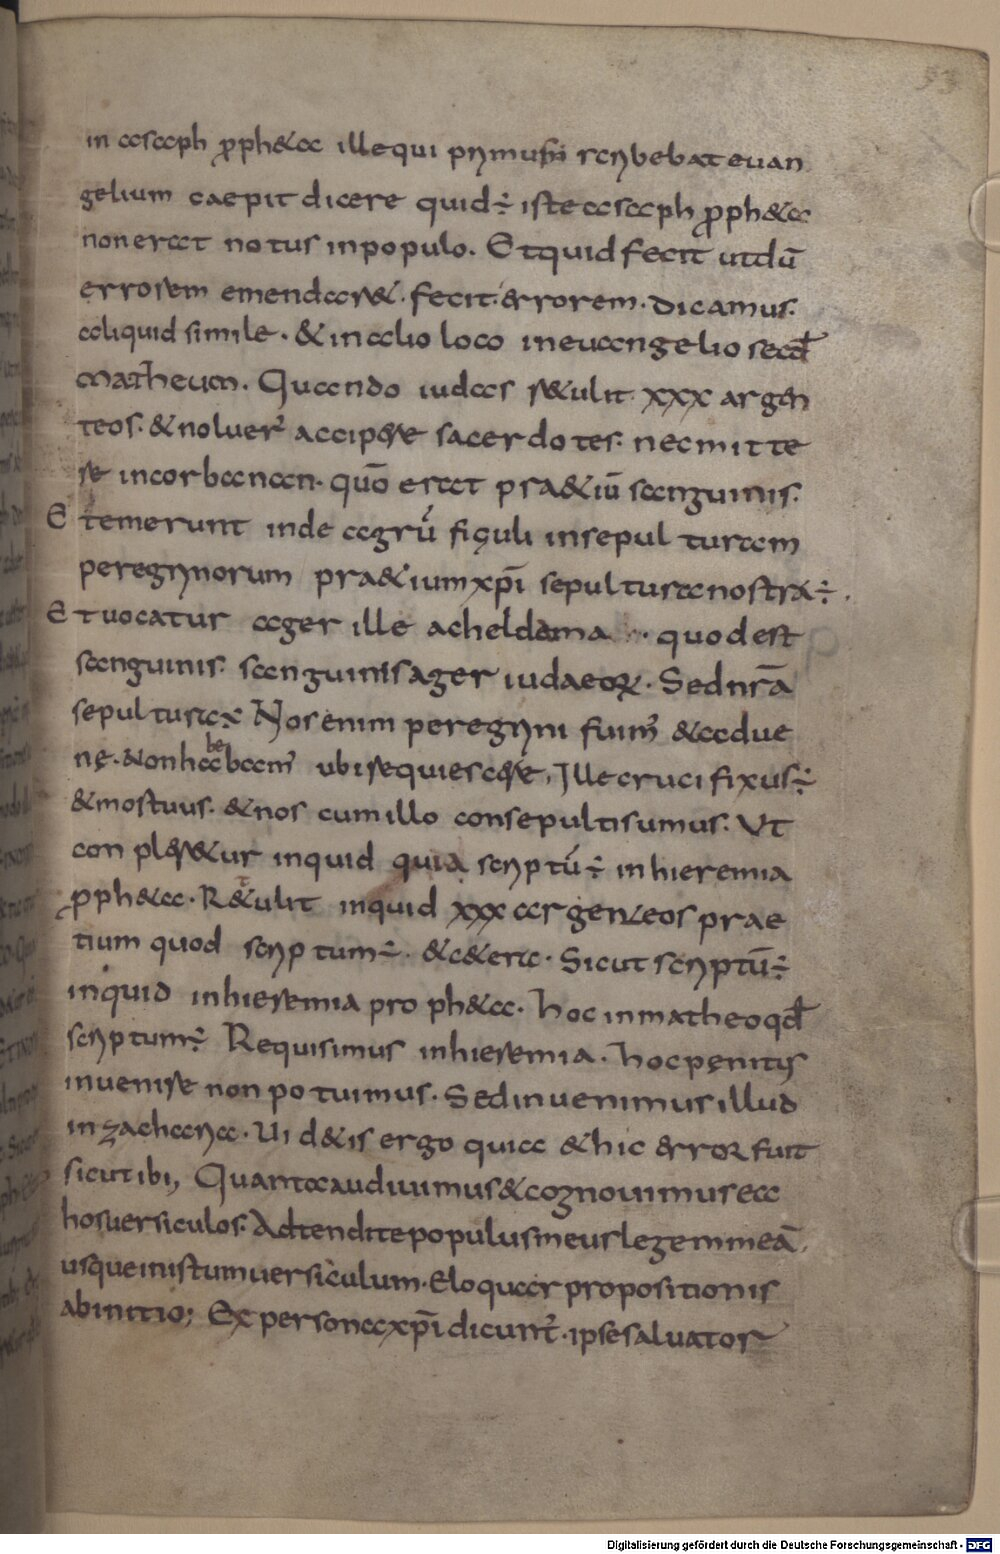 53
in asaph ꝓph&a ille qui primum scribebat euan
gelium caepit dicere quid ÷ iste asaph ꝓph&a
non erat notus in populo. Et quid fecit ut dū
errorem emendar&. fecit errorem. Dicamus
aliquid simile. & in alio loco in euangelio secđ
matheum. Quando iudas r&ulit xxx argen
teos. & noluer̄ accipere sacerdotes. nec mitte
re in corbanan. quō erat pra&iū sanguinis.
Et emerunt inde agrū figuli in sepulturam
peregrinorum pra&ium xp̄i sepultura nostra ÷.
Et uocatur ager ille acheldama quod est
sanguinis. sanguinis ager iudaeoꝝ. Sed nr̄a
sepultura Nos enim peregrini fuim̄ & adue
nę. Non habebam̄ ubi requiescere. Ille crucifixus ÷
& mortuus. & nos cum illo consepulti sumus. Ut
conpler&ur inquid quia scriptū ÷ in hieremia
ꝓph&a. R&ulit inquid xxx argenteos prae
tium quod scriptum ÷. & c&era. Sicut scriptū ÷
inquid in hieremia proph&a. hoc in matheo qđ
scriptum ÷ Requisimus in hieremia. hoc penitus
inuenire non potuimus. Sed inuenimus illud
in zacharia. Uid&is ergo quia & hic error fuit
sicut ibi, Quanta audiuimus & cognouimus ea
hos uersiculos. Adtendite populus meus legem meā.
usque in istum uersiculum. Eloquar propositionis
ab initio; Ex persona xp̄i dicunt̄. ipse saluator
Digitalisierung gefördert durch die Deutsche Forschungsgemeinschaft - DFG